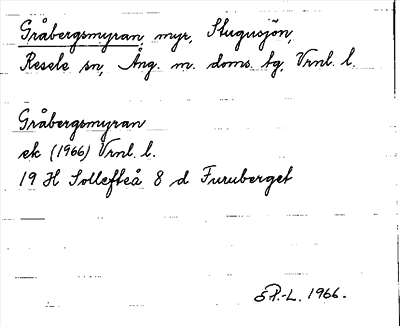 Gråbergsmyran, myr, Stugusjön,
Resele sn, Ång. m. doms. bg, Vrnl. l.
Gråbergsmyran
ek (1966) Vrnl. l.
19 H Sollefteå 8 d Furuberget
EP.-L. 1966.